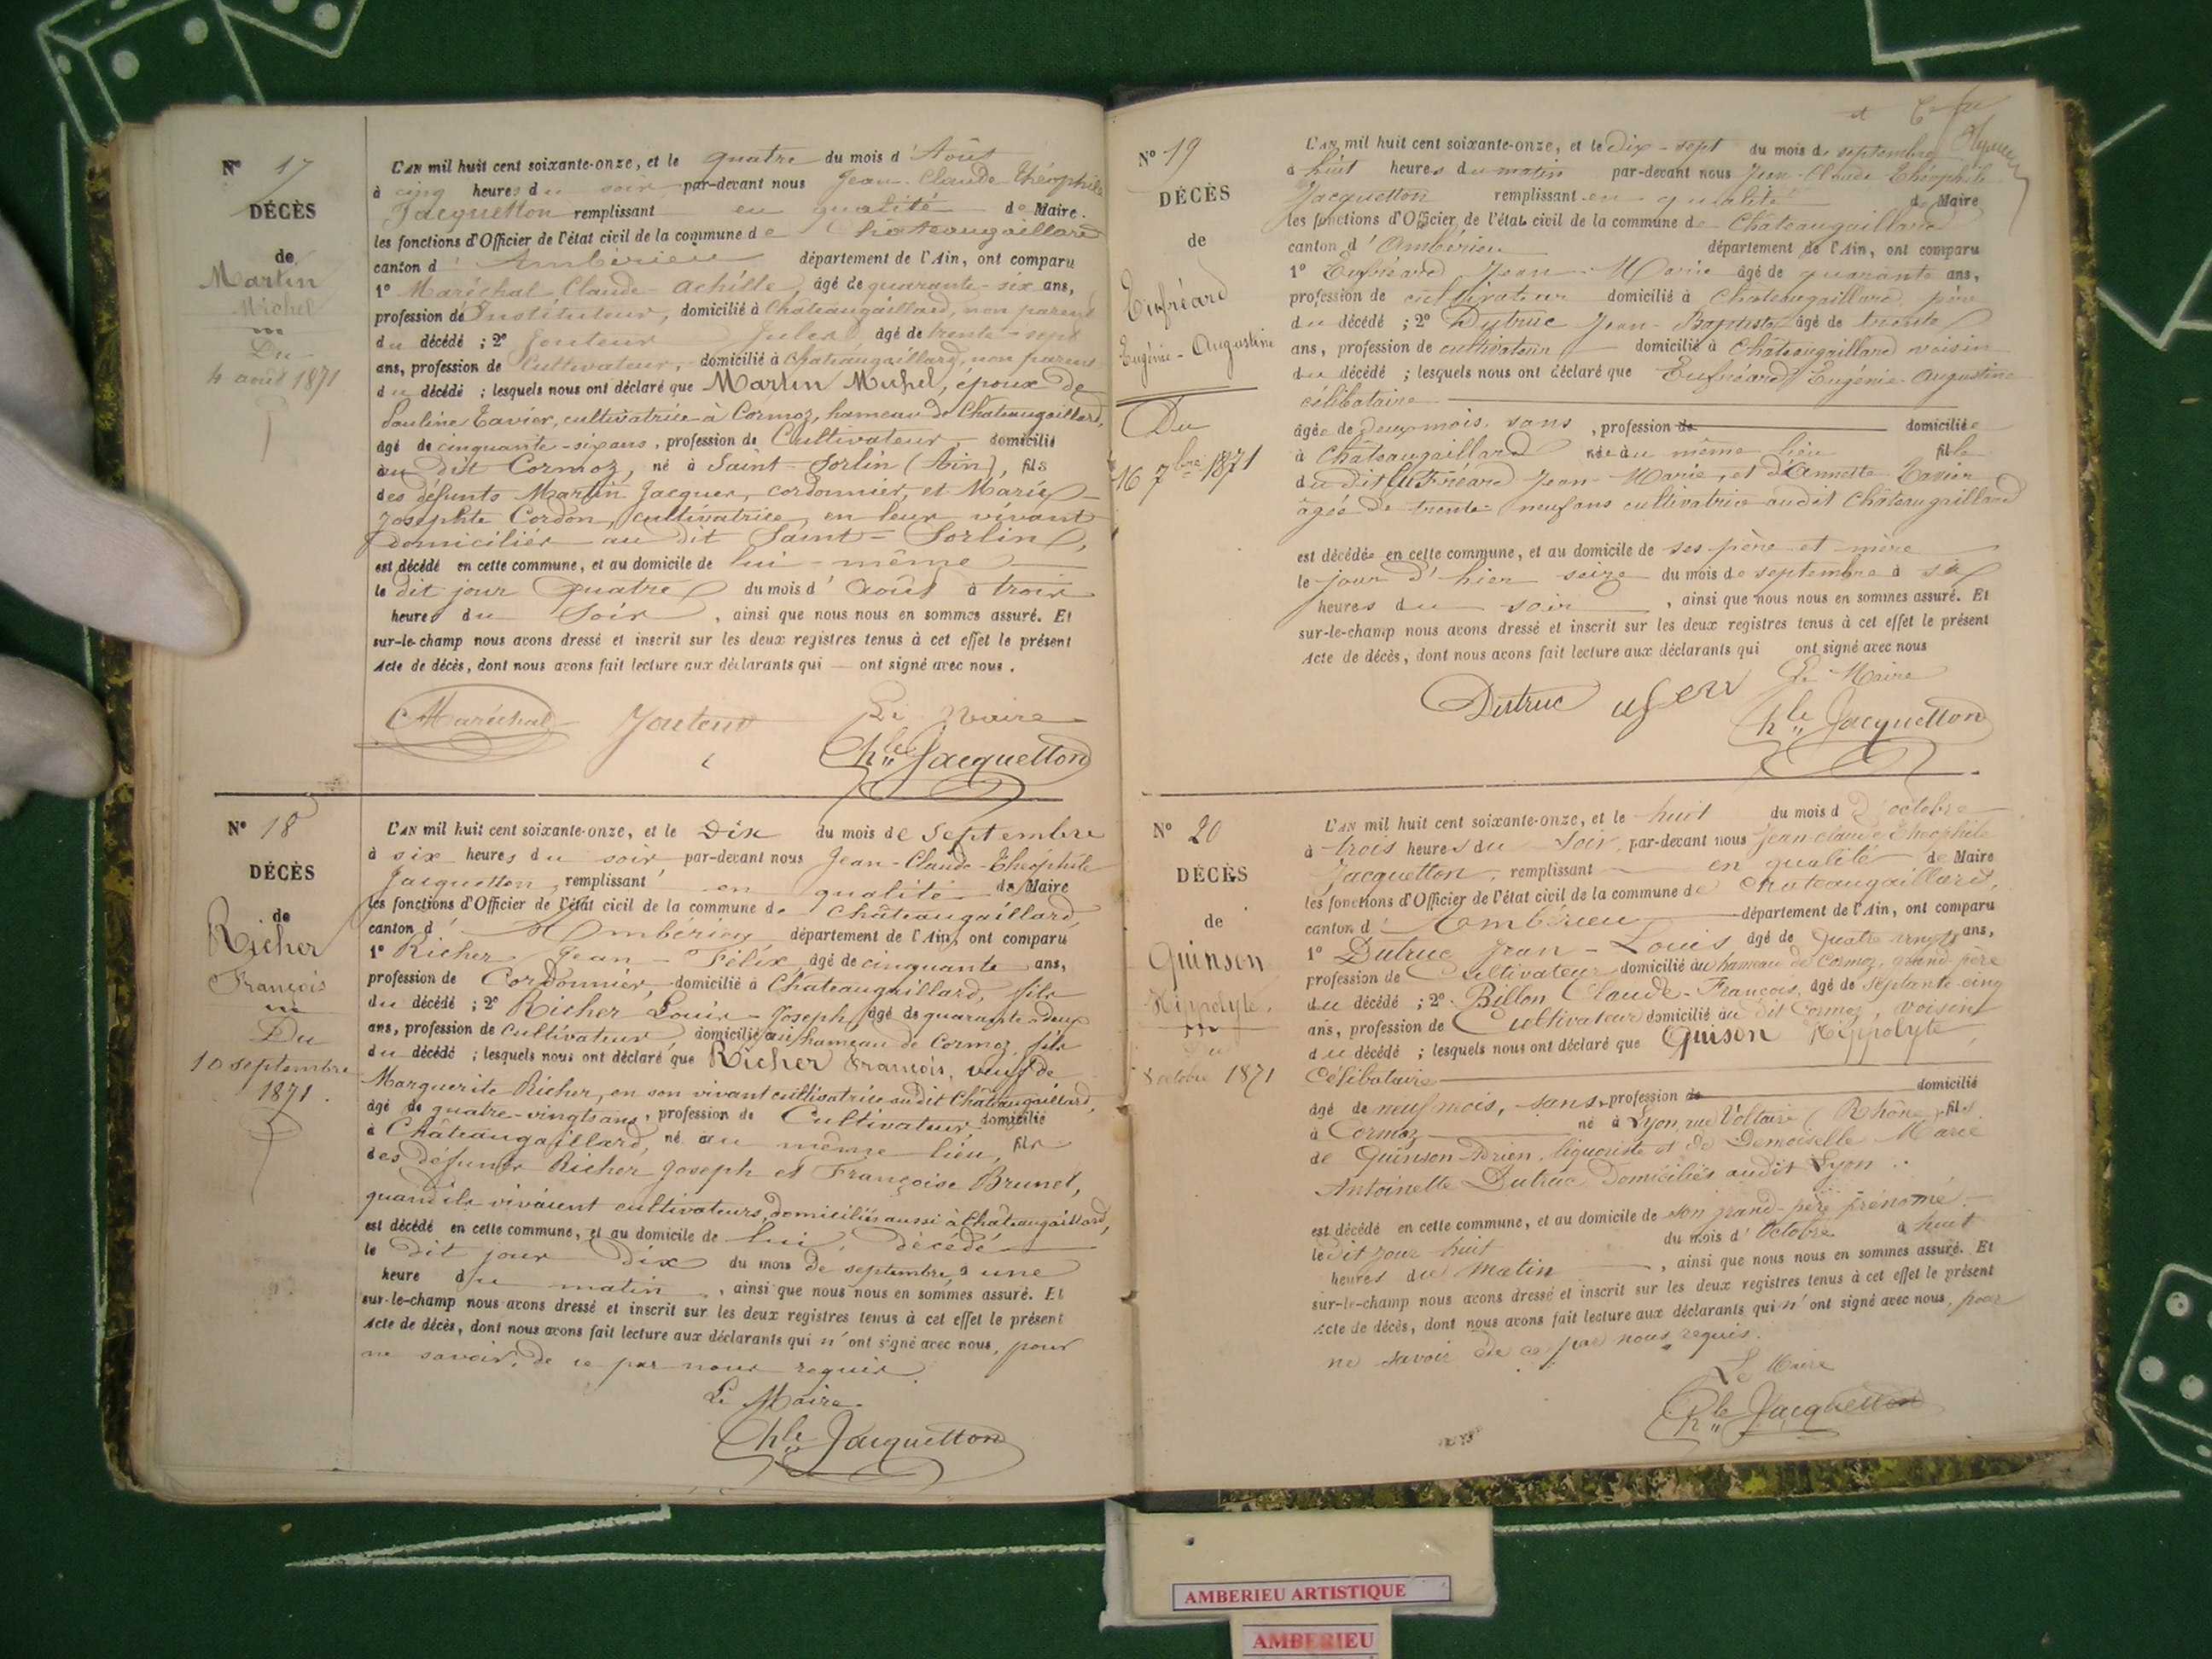 N° 17
DÉCÈS
de
Martin
Michel
Du
4 août 1871
L'AN mil huit cent soixante-onze, et le quatre du mois d'Août
à cinq heures du soir par-devant nous Jean-Claude-Théophile
Jacquetton remplissant en qualité de Maire.
les fonctions d'Officier de l'état civil de la commune de Châteaugaillard
canton d'Ambérieu département de l'Ain, ont comparu
1° Maréchal Claude-Achille, âgé de quarante-six ans,
profession de Instituteur, domicilié à Châteaugaillard, non parent
du décédé ; 2° Jouteur Jules âgé de trente-sept
ans, profession de Cultivateur, domicilié à Châteaugaillard, non parent
du décédé ; lesquels nous ont déclaré que Martin Michel, époux de
Pauline Tavier, cultivatrice à Cormoz, hameau de Châteaugaillard,
âgé de cinquante-six ans, profession de Cultivateur, domicilié
au dit Cormoz, né à Saint-Sorlin (Ain), fils
des défunts Martin Jacques, cordonnier, et Marie
Josephte Cordon, cultivatrice, en leur vivant
domiciliés au dit Saint-Sorlin,
est décédé en cette commune, et au domicile de lui-même
le dit jour quatre du mois d'août à trois
heures du soir, ainsi que nous nous en sommes assuré. Et
sur-le-champ nous avons dressé et inscrit sur les deux registres tenus à cet effet le présent
Acte de décès, dont nous avons fait lecture aux déclarants qui — ont signé avec nous.
Maréchal Jouteur Le Maire
Ch^le Jacquetton
N° 18
DÉCÈS
de
Richer
François
Du
10 septembre
1871.
L'AN mil huit cent soixante-onze, et le Dix du mois de Septembre
à six heures du soir par-devant nous Jean-Claude-Théophile
Jacquetton, remplissant en qualité de Maire
les fonctions d'Officier de l'état civil de la commune de Châteaugaillard
canton d'Ambérieu département de l'Ain, ont comparu
1° Richer Jean-Félix, âgé de cinquante ans,
profession de Cordonnier, domicilié à Châteaugaillard, fils
du décédé ; 2° Richer Louis-Joseph, âgé de quarante-deux
ans, profession de cultivateur domicilié au hameau de Cormoz, fils
du décédé ; lesquels nous ont déclaré que Richer François, veuf de
Marguerite Richer, en son vivant cultivatrice au dit Châteaugaillard,
âgé de quatre-vingts ans, profession de Cultivateur, domicilié
à Châteaugaillard, né au même lieu, fils
des défunts Richer Joseph et Françoise Brunet,
quand ils vivaient cultivateurs, domiciliés aussi à Châteaugaillard,
est décédé en cette commune, et au domicile de lui, décédé
le dit jour dix du mois de septembre, à une
heure du matin, ainsi que nous nous en sommes assuré. Et
sur-le-champ nous avons dressé et inscrit sur les deux registres tenus à cet effet le présent
Acte de décès, dont nous avons fait lecture aux déclarants qui n'ont signé avec nous, pour
ne savoir, de ce par nous requis.
Le Maire.
Ch^le Jacquetton
N° 19
DÉCÈS
de
Eufréard
Eugénie-Augustine
Du
16 7bre 1871
L'AN mil huit cent soixante-onze, et le Dix-sept du mois de septembre
à huit heures du matin par-devant nous Jean-Claude Théophile
Jacquetton remplissant en qualité de Maire
les fonctions d'Officier de l'état civil de la commune de Châteaugaillard
canton d'Ambérieu département de l'Ain, ont comparu
1° Eufréard Jean-Marie âgé de quarante ans,
profession de cultivateur domicilié à Châteaugaillard, père
du décédé ; 2° Dutruc Jean-Baptiste âgé de trente
ans, profession de cultivateur domicilié à Châteaugaillard voisin
du décédé ; lesquels nous ont déclaré que Eufréard Eugénie Augustine
célibataire
âgée de deux mois, sans, profession de domiciliée
à Châteaugaillard née au même lieu fille
du dit Eufréard Jean-Marie, et d'Annette Tavier
âgée de trente-neuf ans cultivatrice audit Châteaugaillard
est décédée en cette commune, et au domicile de ses père et mère
le jour d'hier seize du mois de septembre à six
heures du soir, ainsi que nous nous en sommes assuré. Et
sur-le-champ nous avons dressé et inscrit sur les deux registres tenus à cet effet le présent
Acte de décès, dont nous avons fait lecture aux déclarants qui ont signé avec nous
Le Maire
Dutruc
Ch^le Jacquetton
N° 20
DÉCÈS
de
Quinson
Hippolyte.
Du
8 octobre 1871
L'AN mil huit cent soixante-onze, et le huit du mois d'octobre
à trois heures du soir, par-devant nous Jean claude théophile
Jacquetton, remplissant en qualité de Maire
les fonctions d'Officier de l'état civil de la commune de Châteaugaillard,
canton d'Ambérieu département de l'Ain, ont comparu
1° Dutruc Jean-Louis âgé de quatre vingts ans,
profession de Cultivateur domicilié au hameau de Cormoz, grand-père
du décédé ; 2° Billon Claude-François, âgé de septante-cinq
ans, profession de Cultivateur domicilié au dit Cormoz, voisin
du décédé ; lesquels nous ont déclaré que Quison Hippolyte,
Célibataire
âgé de neuf mois, sans, profession de domicilié
à Cormoz né à Lyon, rue Voltaire (Rhône), fils
de Quinson Adrien, liquoriste et de Demoiselle Marie
Antoinette Dutruc Domiciliés audit Lyon.
est décédé en cette commune, et au domicile de son grand-père prénomé
le dit jour huit du mois d'Octobre à huit
heures du matin, ainsi que nous nous en sommes assuré. Et
sur-le-champ nous avons dressé et inscrit sur les deux registres tenus à cet effet le présent
Acte de décès, dont nous avons fait lecture aux déclarants qui n'ont signé avec nous, pour
ne savoir de ce par nous requis.
Le Maire
Ch^le Jacquetton
AMBERIEU ARTISTIQUE
AMBERIEU